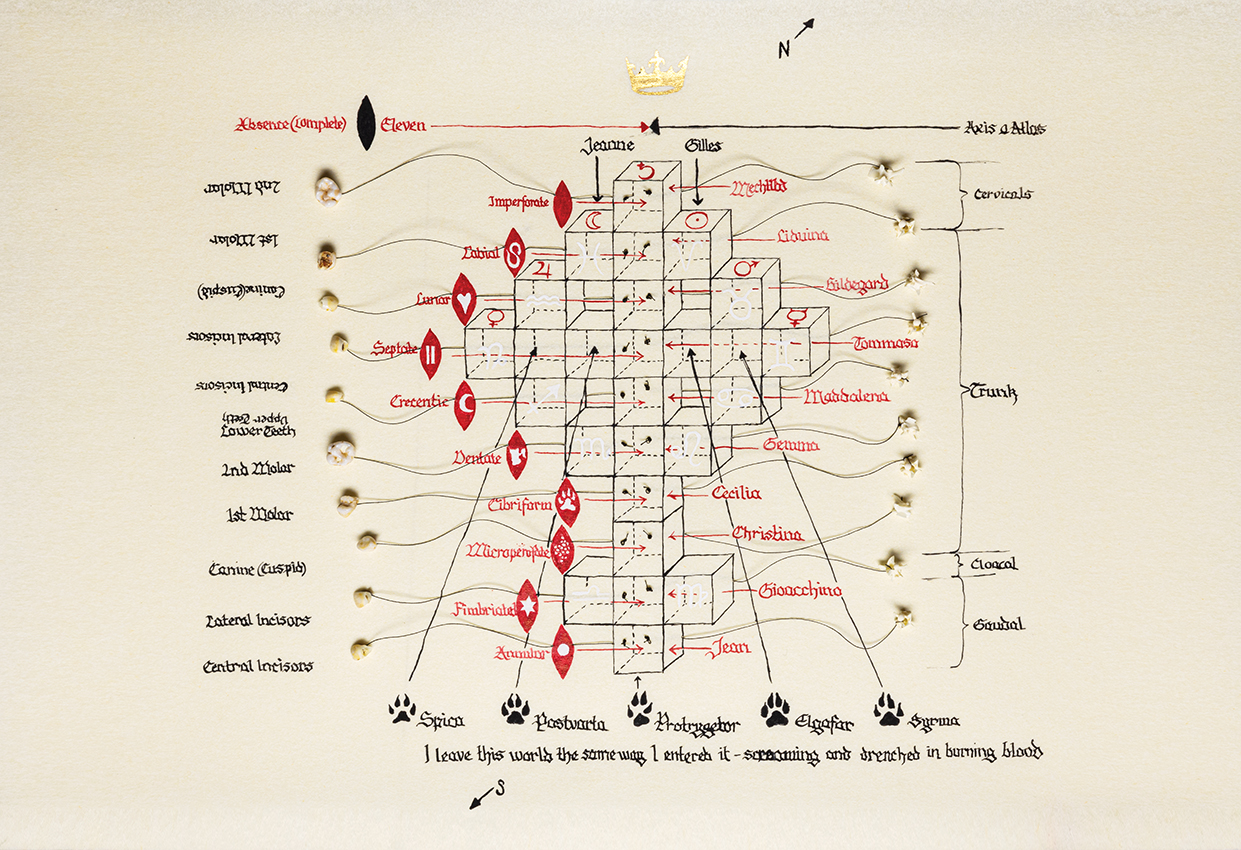 N
Absence (complete)
Eleven
Axis & Atlas
Jeanne
Gilles
2nd Molar
Imperforate
Mechtild
Cervicals
1st Molar
Labial
Liduina
Canine (Cuspid)
Lunar
Hildegard
Lateral Incisors
Septate
Tommasa
Central Incisors
Crecentic
Maddalena
Trunk
Upper Teeth
Lower Teeth
2nd Molar
Dentate
Gemma
1st Molar
Cibriform
Cecilia
Christina
Canine (Cuspid)
Cloacal
Lateral Incisors
Fimbriated
Gioacchino
Caudal
Central Incisors
Annular
Jean
Spica
Postvarta
Protrygetor
Elgafar
Syrma
I leave this world the same way I entered it - screaming and drenched in burning blood
S